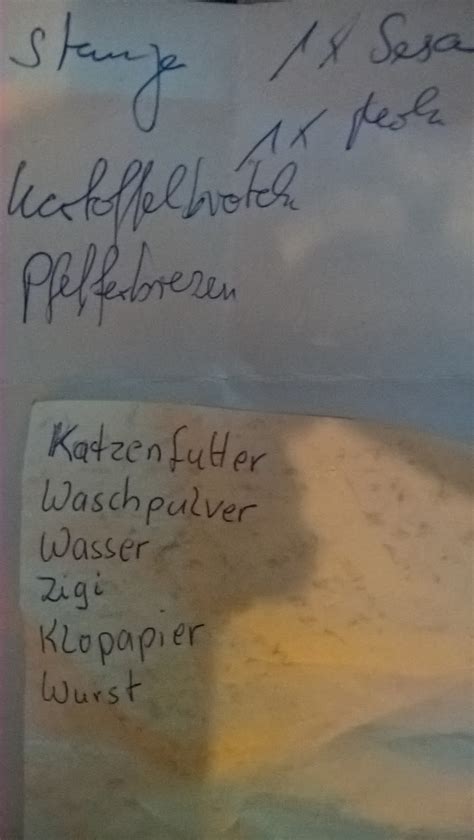 Stange 1x Sesa
1x Mohn
Kartoffelbrötch
Pfefferbrezen
Katzenfutter
Waschpulver
Wasser
Zigi
Klopapier
Wurst